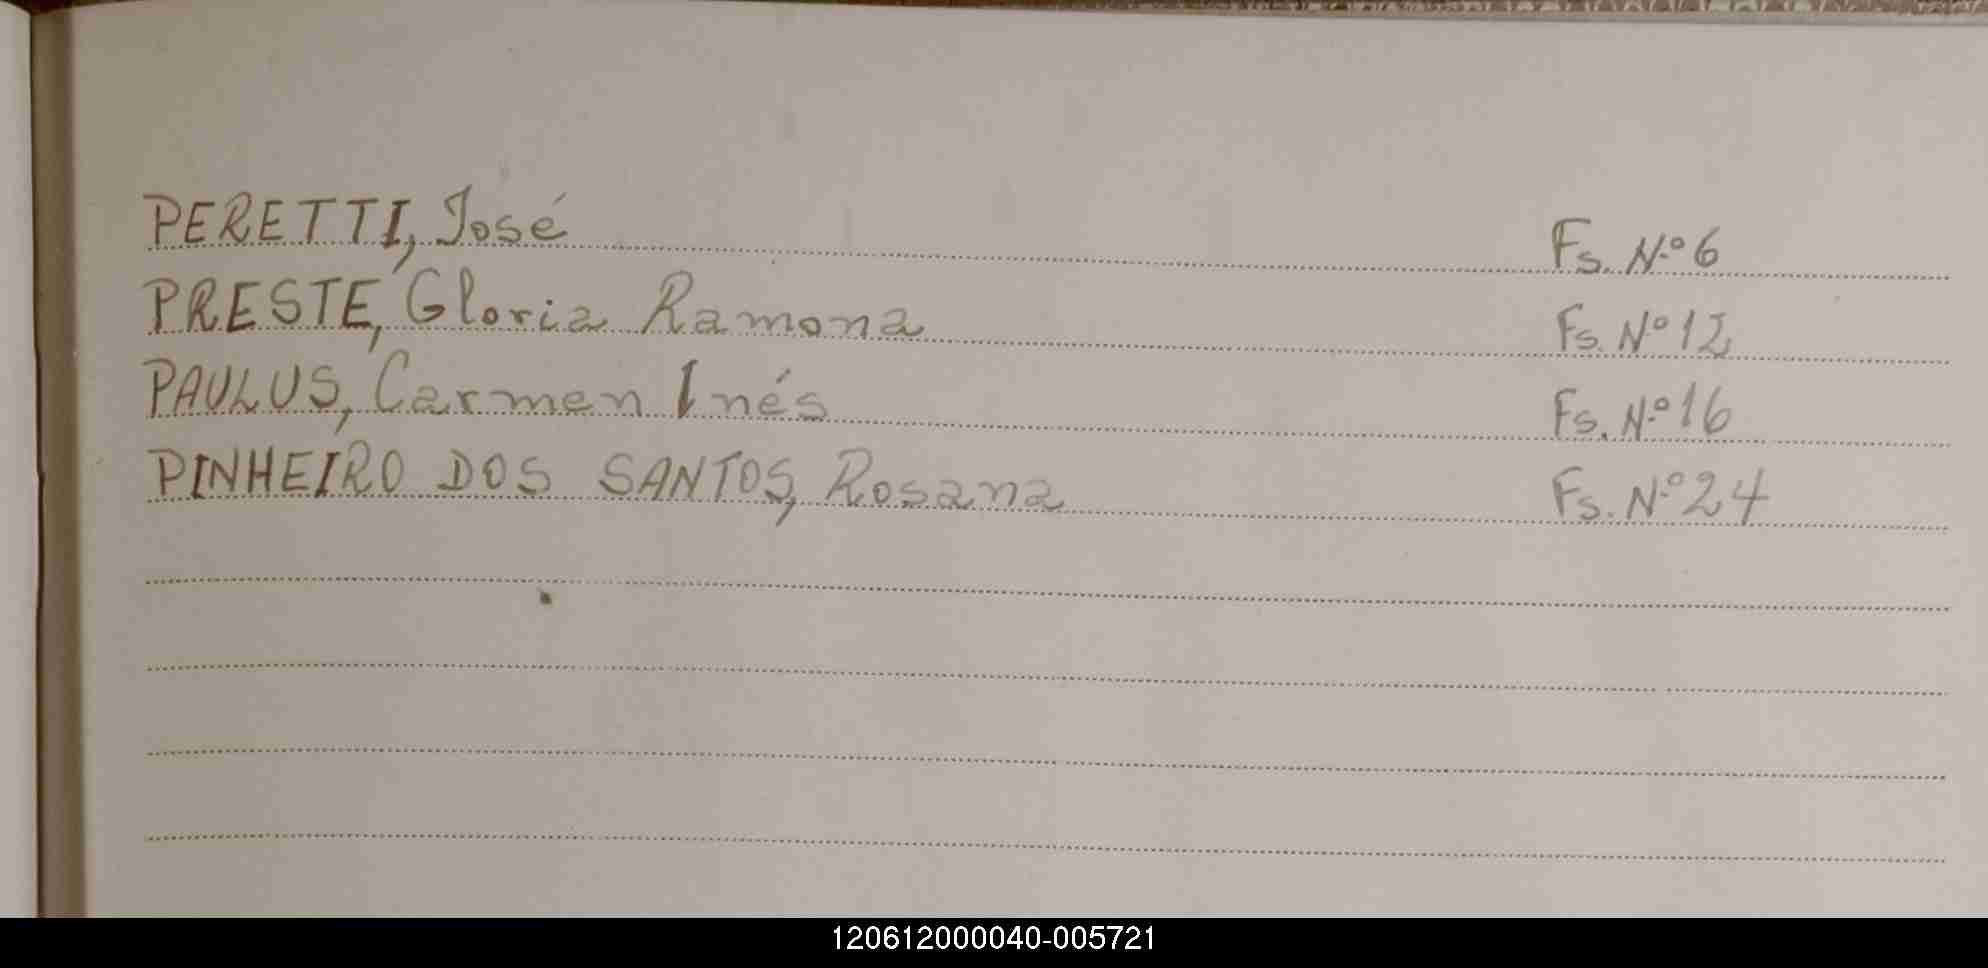 PERETTI, José Fs. Nº 6
PRESTE, Gloria Ramona Fs. Nº 12
PAULUS, Carmen Inés Fs. Nº 16
PINHEIRO DOS SANTOS, Rosana Fs. Nº 24
120612000040-005721